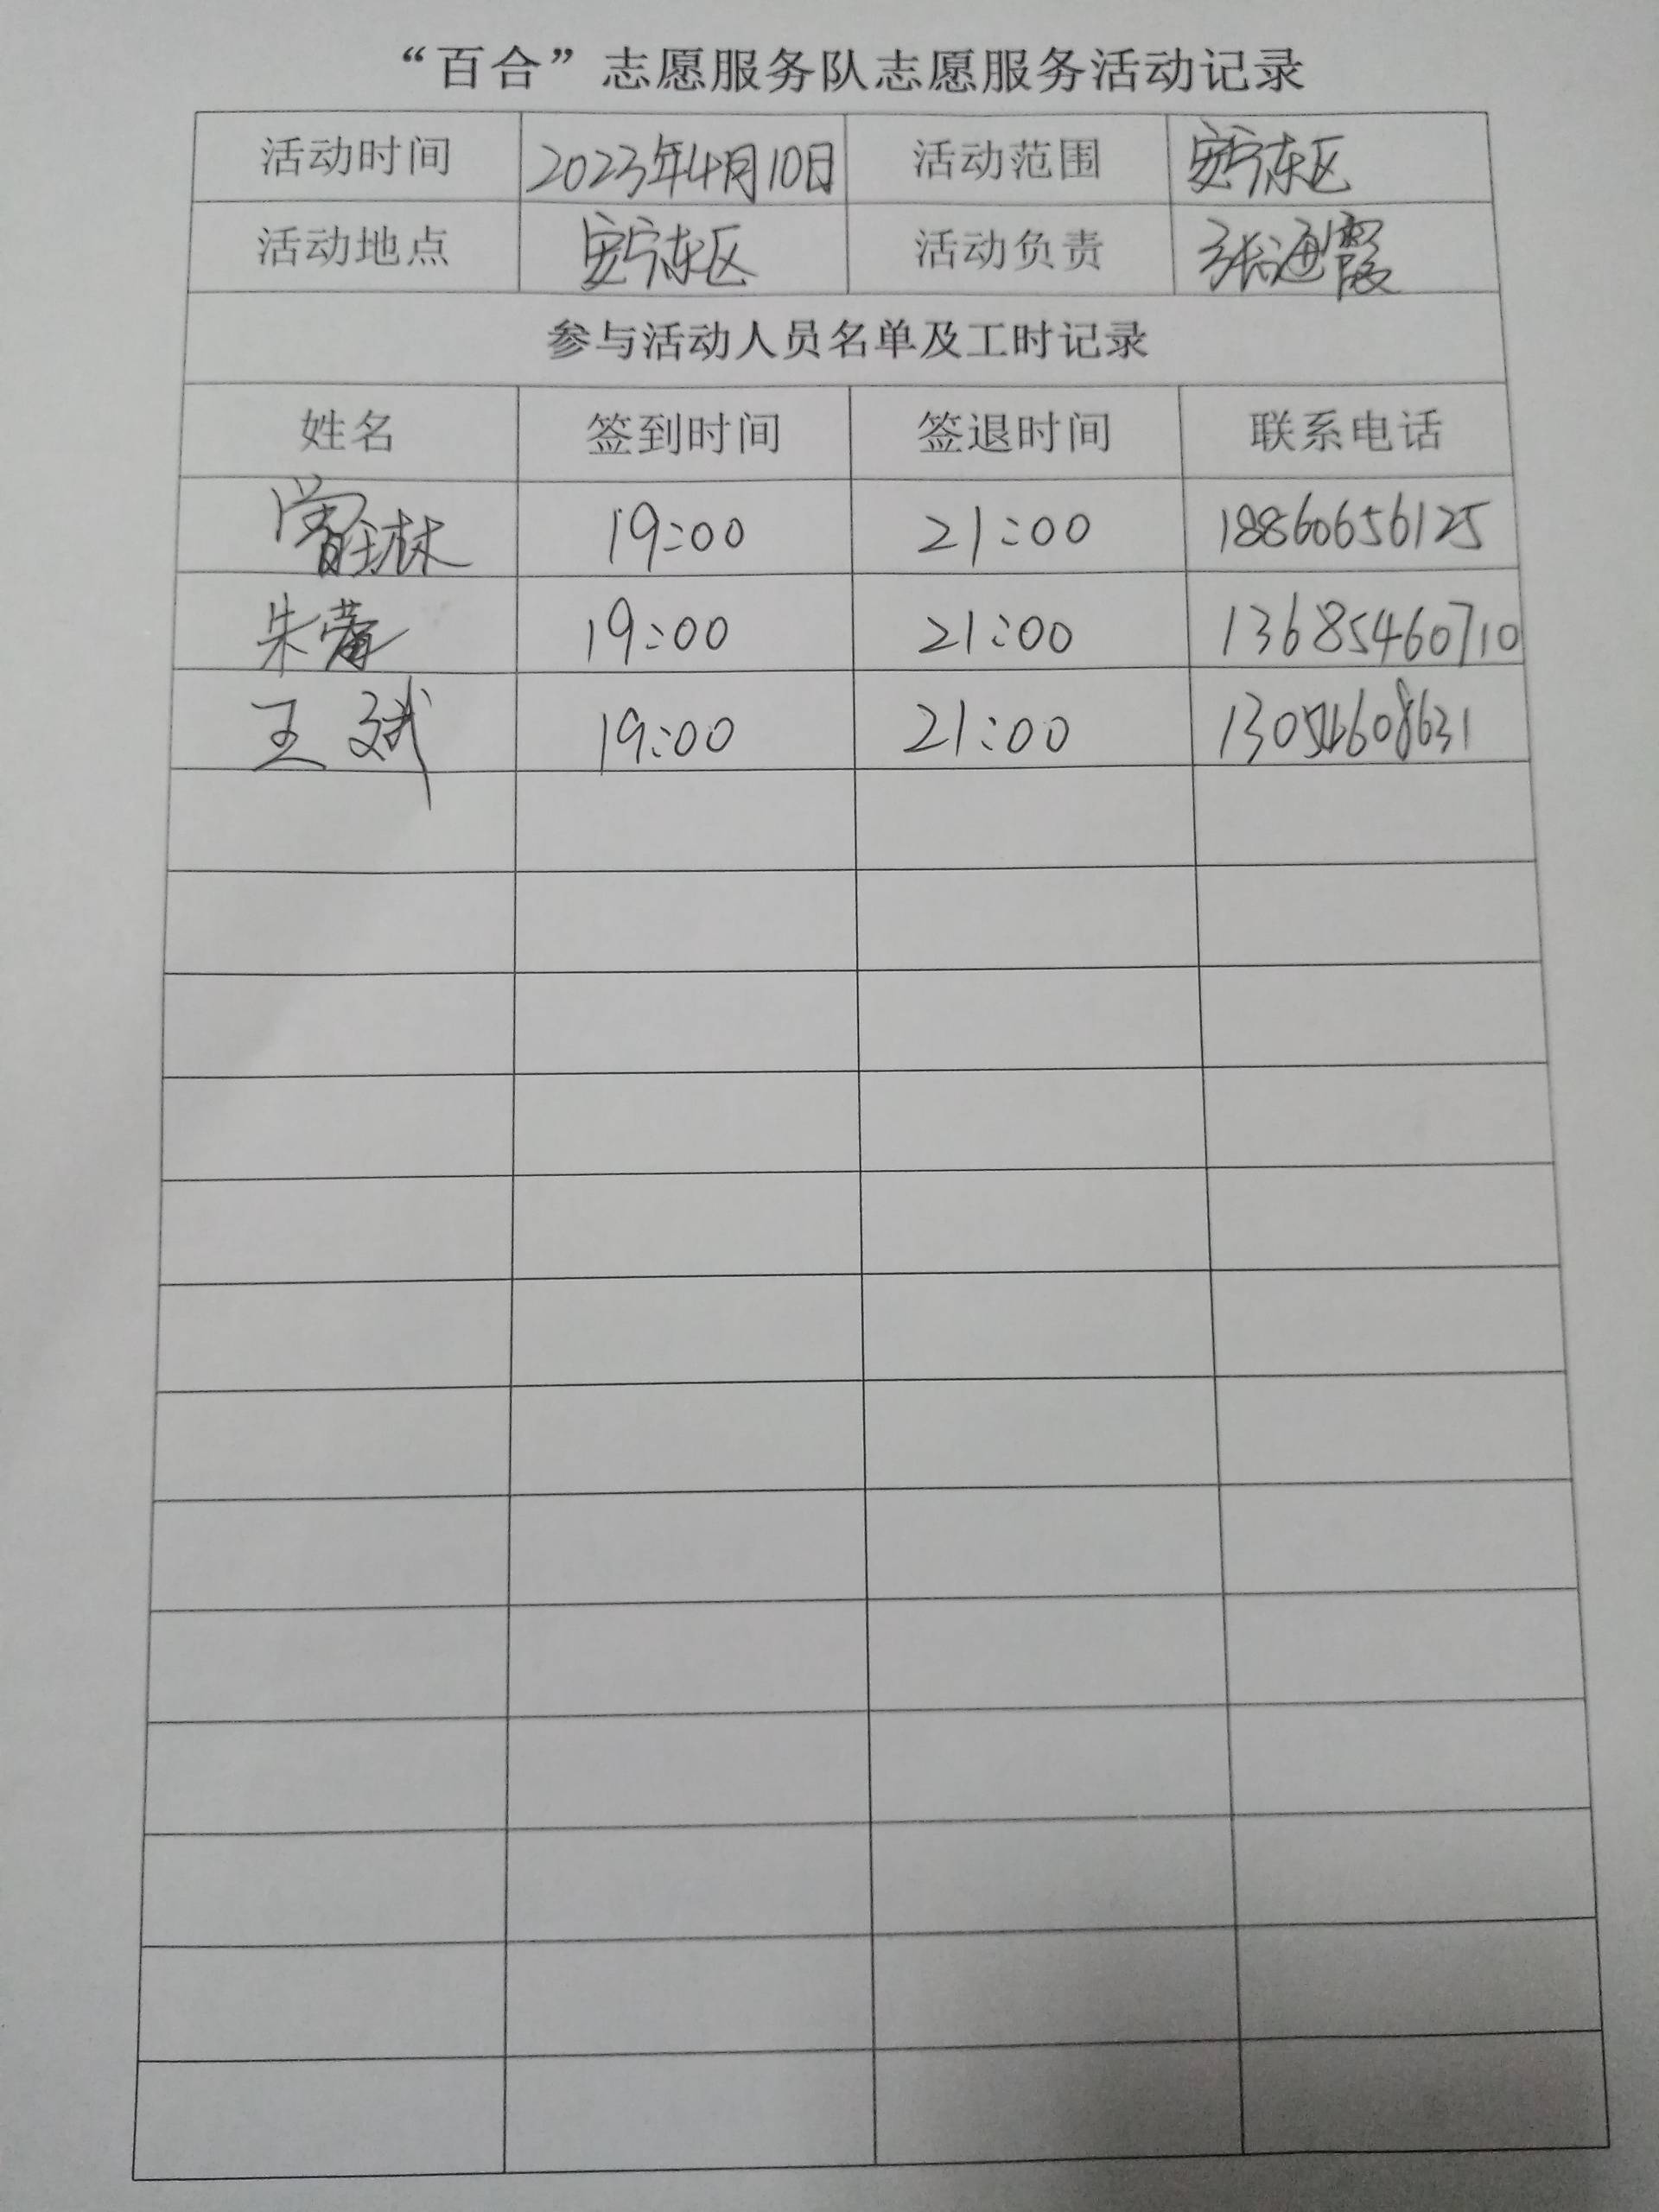 “百合”志愿服务队志愿服务活动记录
活动时间 2023年4月10日 活动范围 安宁东区
活动地点 安宁东区 活动负责 张通霞
参与活动人员名单及工时记录
姓名 签到时间 签退时间 联系电话
19:00 21:00 18860656125
朱蕾 19:00 21:00 13685460710
王斌 19:00 21:00 13054608631